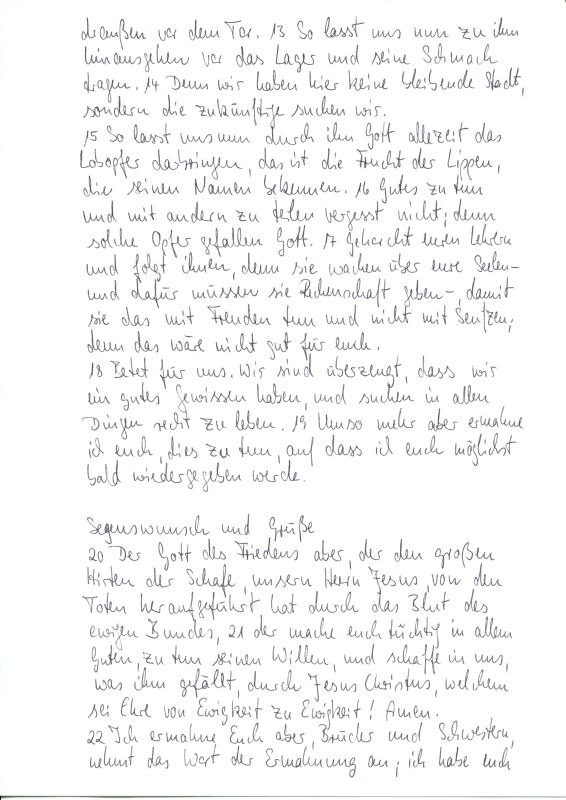 draußen vor dem Tor. 13 So lasst uns nun zu ihm
hinausgehen vor das Lager und seine Schmach
tragen. 14 Denn wir haben hier keine bleibende Stadt,
sondern die zukünftige suchen wir.
15 So lasst uns nun durch ihn Gott allezeit das
Lobopfer darbringen, das ist die Frucht der Lippen,
die seinen Namen bekennen. 16 Gutes zu tun
und mit andern zu teilen vergesst nicht; denn
solche Opfer gefallen Gott. 17 Gehorcht euren Lehrern
und folgt ihnen, denn sie wachen über eure Seelen –
und dafür müssen sie Rechenschaft geben –, damit
sie das mit Freuden tun und nicht mit Seufzen;
denn das wäre nicht gut für euch.
18 Betet für uns. Wir sind überzeugt, dass wir
ein gutes Gewissen haben, und suchen in allen
Dingen recht zu leben. 19 Umso mehr aber ermahne
ich euch, dies zu tun, auf dass ich euch möglichst
bald wiedergegeben werde.
Segenswunsch und Grüße
20 Der Gott des Friedens aber, der den großen
Hirten der Schafe, unsern Herrn Jesus von den
Toten heraufgeführt hat durch das Blut des
ewigen Bundes, 21 der mache euch tüchtig in allem
Guten, zu tun seinen Willen, und schaffe in uns,
was ihm gefällt, durch Jesus Christus, welchem
sei Ehre von Ewigkeit zu Ewigkeit! Amen.
22 Ich ermahne Euch aber, Brüder und Schwestern,
nehmt das Wort der Ermahnung an; ich habe euch